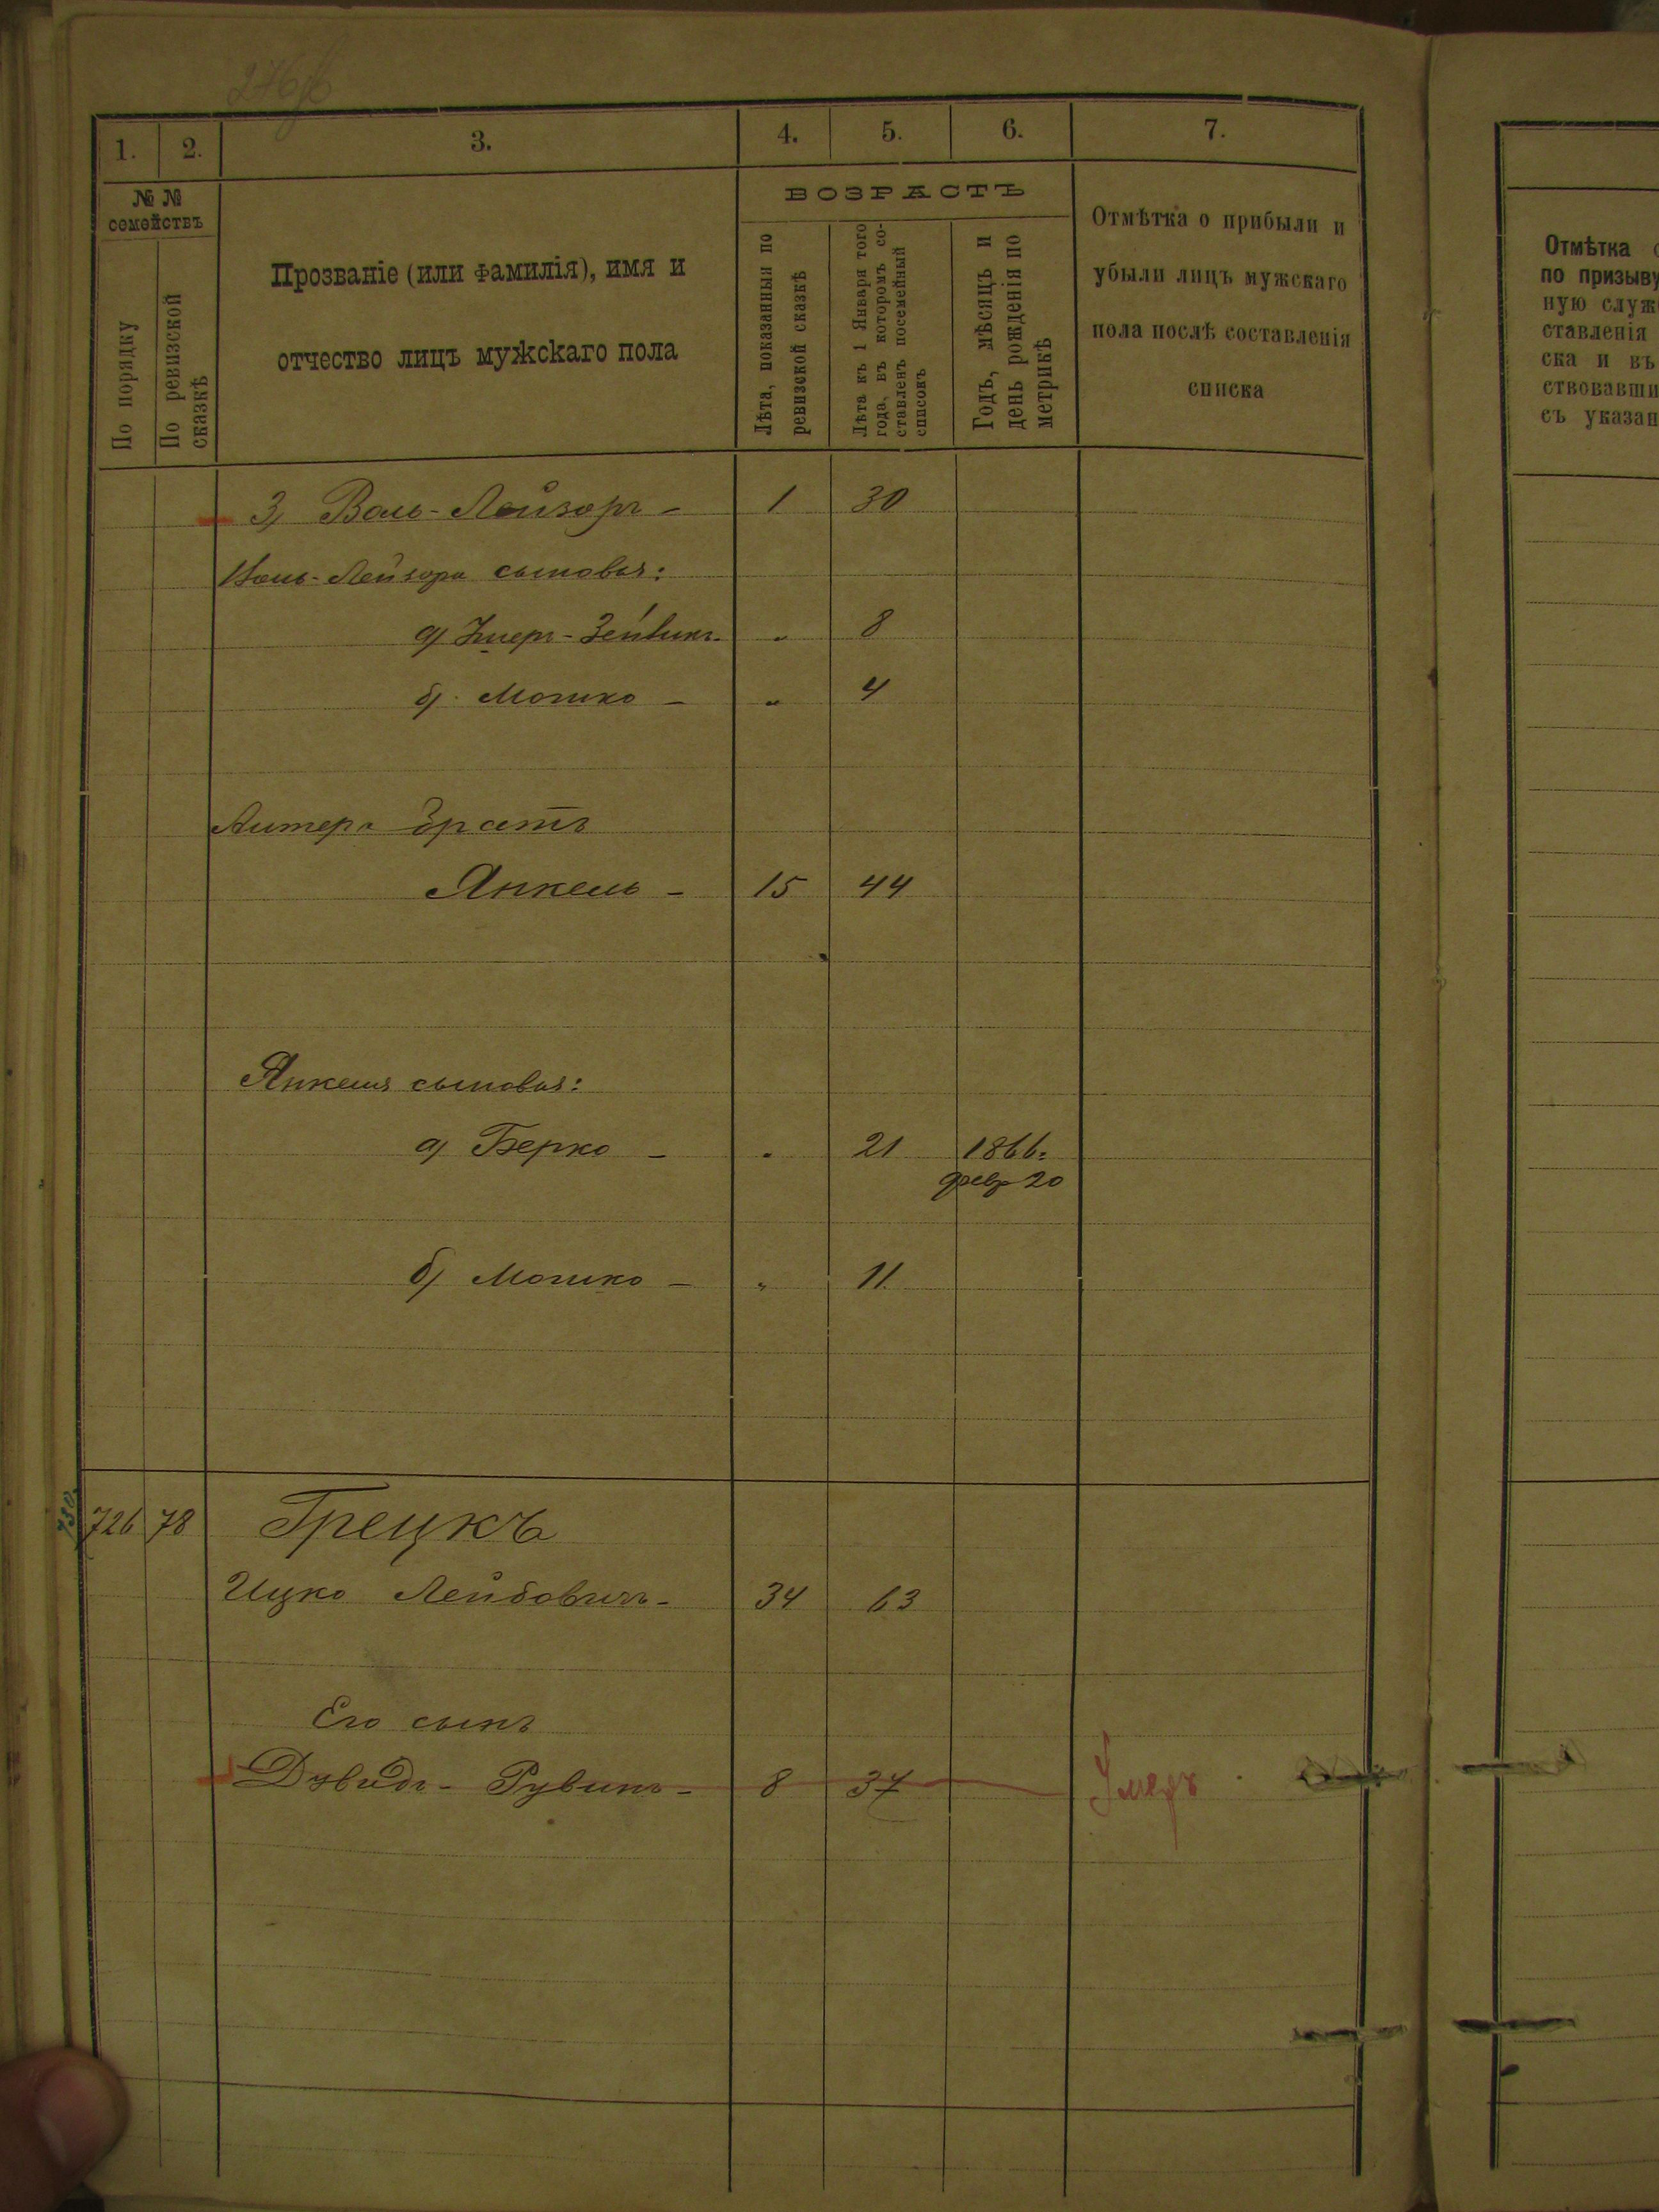 276об
1. 2. 3. 4. 5. 6. 7.
№ №
семействъ
По порядку
По ревизской
сказкѣ
Прозваніе (или фамилія), имя и
отчество лицъ мужскаго пола
ВОЗРАСТЪ
Лѣта, показанныя по
ревизской сказкѣ
Лѣта къ 1 Января того
года, въ которомъ со-
ставленъ посемейный
списокъ
Годъ, мѣсяцъ и
день рожденія по
метрикѣ
Отмѣтка о прибыли и
убыли лицъ мужскаго
пола послѣ составленія
списка
3) Воль-Лейзоръ - 1 30
Воль-Лейзора сыновья:
а) -Зейвикъ - " 8
б) Мошко - " 4
Алтера братъ
Янкель - 15 44
Янкеля сыновья:
а) Берко - " 21 1866г
февр 20
б) Мошко - " 11.
730
726 78 Грецкъ
Ицко Лейбовичъ - 34 63
Его сынъ
Давидъ - Рувинъ - 8 37 Умеръ
Отмѣтка
по призыву
ную служ
ставленія
ска и въ
ствовавши
съ указан